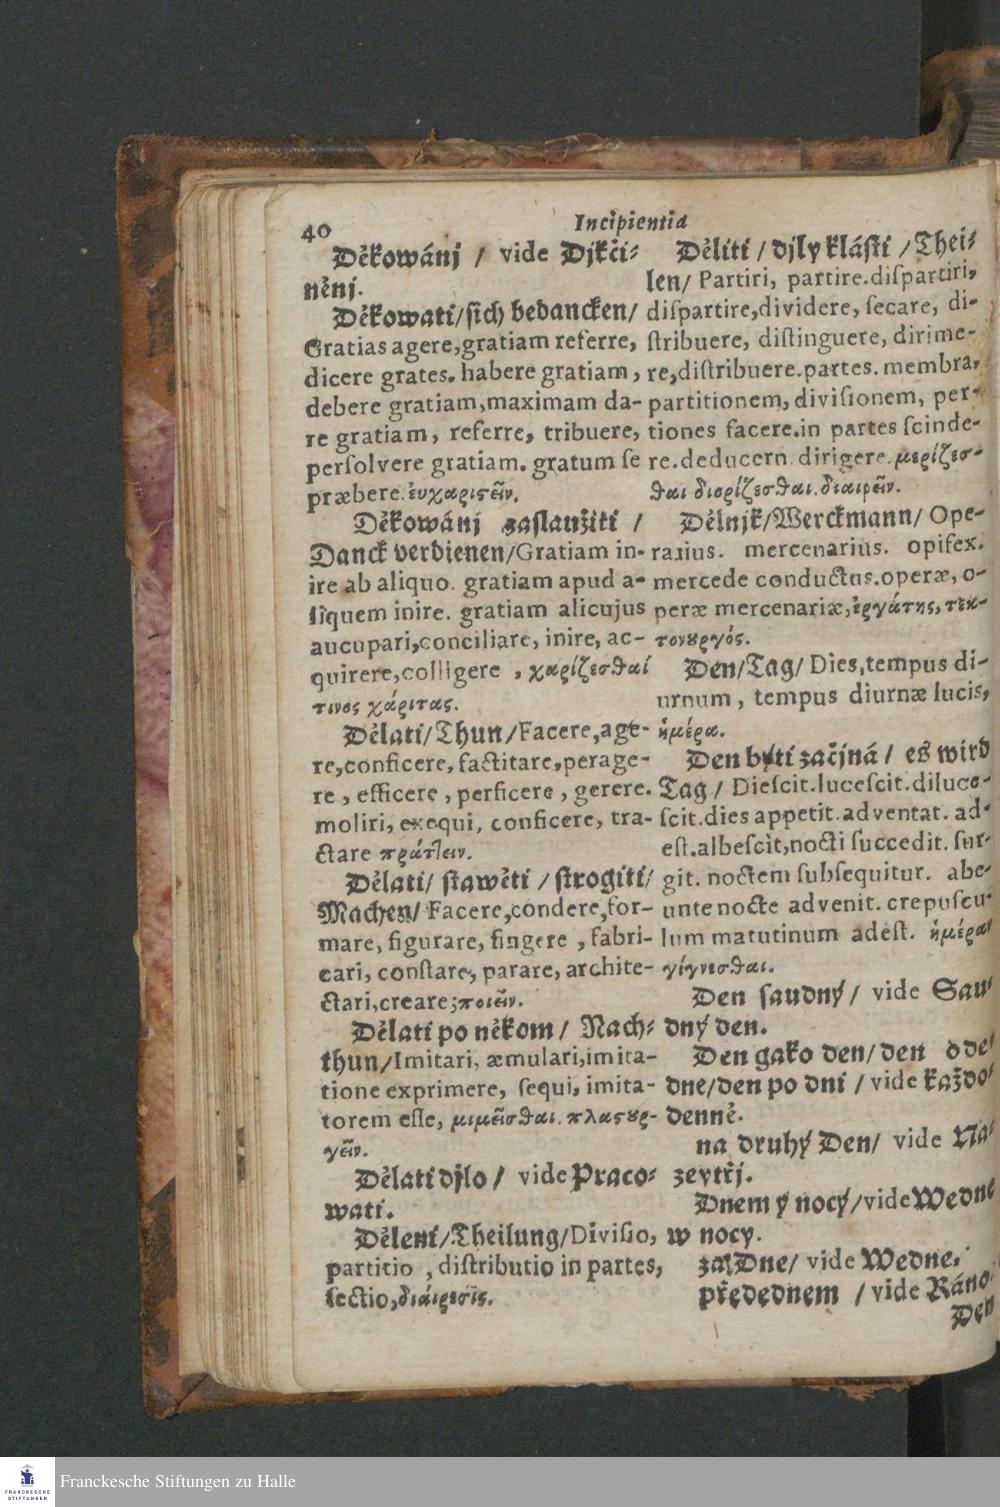 40
Incipientia
Děkowánj / vide Djkči⸗
něnj.
Děkowati/sich bedancken/
Gratias agere,gratiam referre,
dicere grates. habere gratiam,
debere gratiam,maximam da-
re gratiam, referre, tribuere,
persolvere gratiam. gratum se
præbere. ἐυχαριϛεῖν.
Děkowánj zaslaužiti /
Danck verdienen/Gratiam in-
ire ab aliquo. gratiam apud a-
liquem inire. gratiam alicujus
aucupari,conciliare, inire, ac-
quirere,colligere , χαρίζεσθαί
τινος χάριτας.
Dělati/Thun/Facere,age-
re,conficere, factitare,perage-
re , efficere , perficere , gerere.
moliri, exequi, conficere, tra-
ctare πράτ̔ειν.
Dělati/ stawěti /strogiti/
Machen/ Facere,condere,for-
mare, figurare, fingere , fabri-
cari, constare, parare, archite-
ctari,creare;ποιεῖν.
Dělati po někom/ Nach⸗
thun/Imitari, æmulari,imita-
tione exprimere, sequi, imita-
torem esse, μιμεῖσθαι. πλαϛȣρ-
γεῖν.
Dělati djlo / vide Praco⸗
wati.
Dělení/Theilung/Divisio,
partitio , distributio in partes,
sectio,διάιρεσις.
Děliti /djly klásti /Thei⸗
len/ Partiri, partire.dispartiri,
dispartire,dividere, secare, di-
stribuere, distinguere, dirime-
re,distribuere.partes. membra,
partitionem, divisionem, per-
tiones facere.in partes scinde-
re.deducern dirigere. μερίζεσ-
θαι διορίζεσθαι.διαιρεῖν.
Dělnjk/Werckmann/ Ope-
rarius. mercenarius. opifex.
mercede conductus.operæ, o-
peræ mercenariæ,ἐργάτης, τεκ-
τονȣργός.
Den/Tag/ Dies,tempus di-
urnum , tempus diurnæ lucis,
ἡμέρα.
Den býti začjná/ es wird
Tag / Diescit.lucescit.diluce-
scit.dies appetit.adventat. ad-
est.albescit,nocti succedit. sur-
git. noctem subsequitur. abe-
unte nocte advenit. crepuscu-
lum matutinum adest. ἡμέραν
γίγνεσθαι.
Den saudný/ vide Sau⸗
dný den.
Den gako den/den ode
dne/den po dni /vide každo⸗
denně.
na druhý Den/ vide Na⸗
zeytřj.
Dnem y nocý/vide Wedne
w nocy.
za Dne/ vide Wedne.
předednem /vide Ráno.
Den
Franckesche Stiftungen zu Halle
FRANCKESCHE
STIFTUNGEN